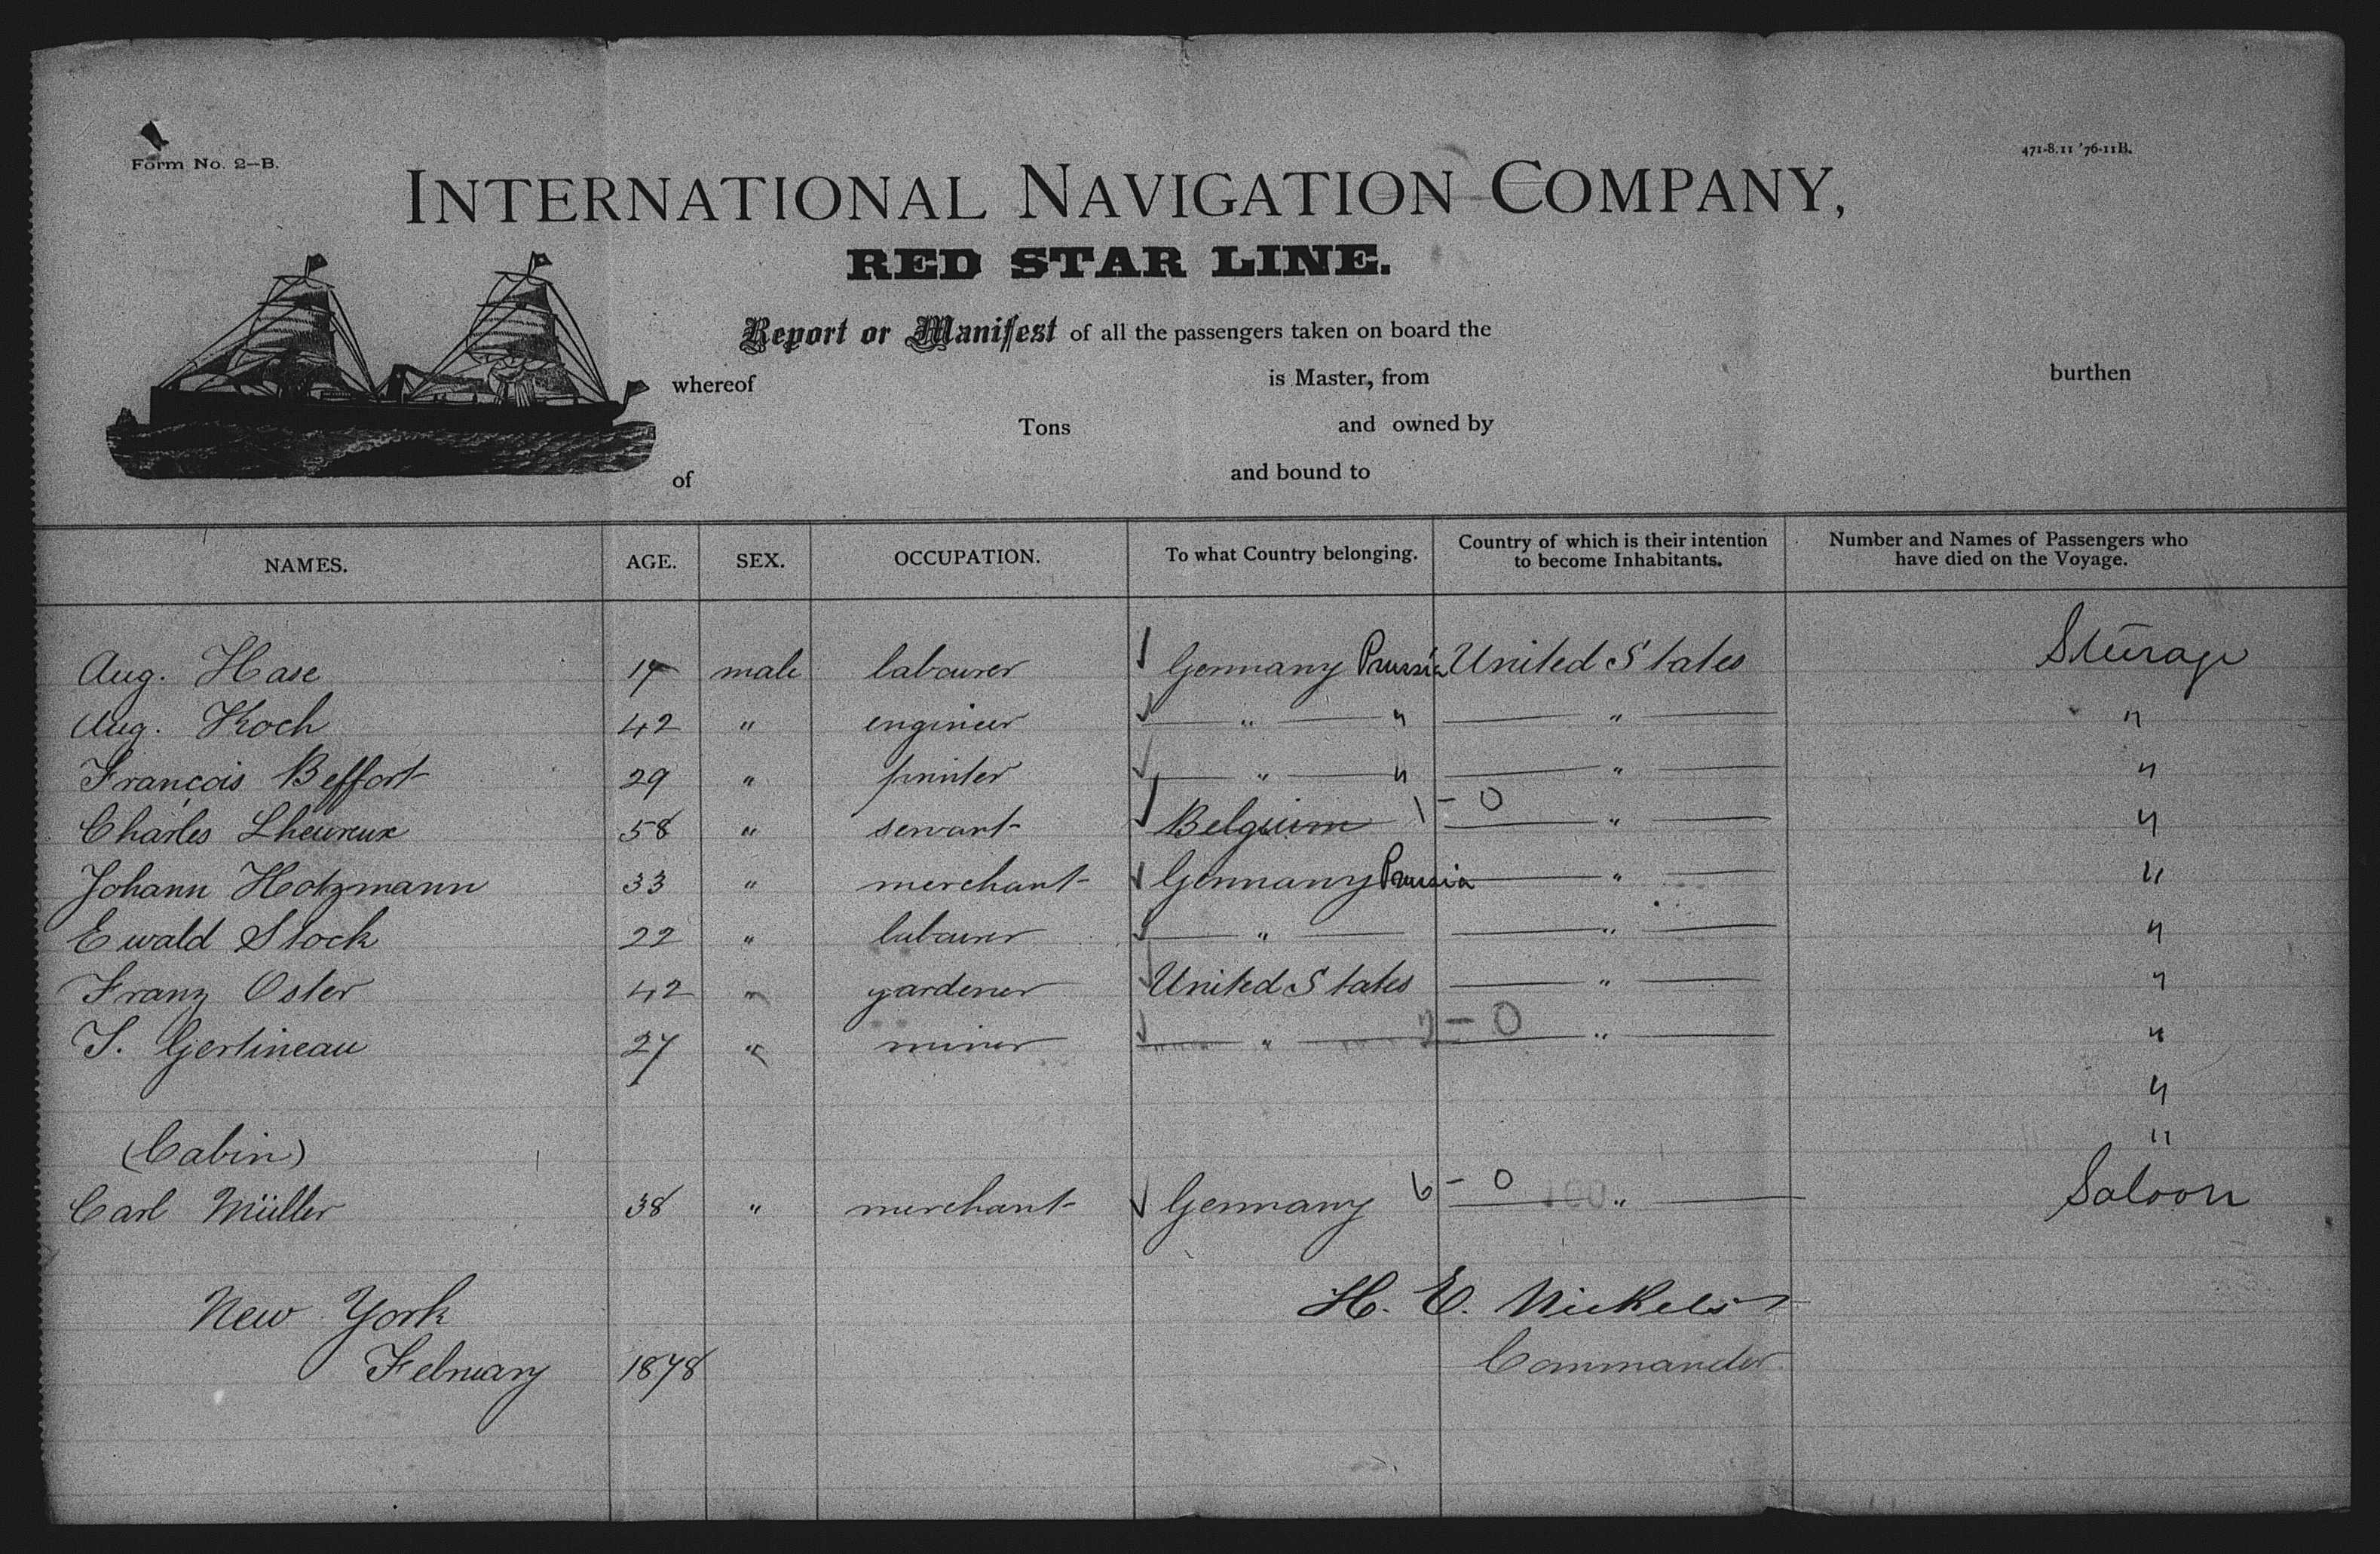 Form No. 2–B.
471-8.11 '76-11B.
INTERNATIONAL NAVIGATION COMPANY,
RED STAR LINE.
Report or Manifest of all the passengers taken on board the
whereof is Master, from burthen
Tons and owned by
of and bound to
NAMES. AGE. SEX. OCCUPATION. To what Country belonging. Country of which is their intention to become Inhabitants. Number and Names of Passengers who have died on the Voyage.
Aug. Hase 17 male labourer Germany Prussia United States Steerage
Aug. Koch 42 " engineer " " " "
François Beffort 29 " printer " " " "
Charles Lheureux 58 " servant Belgium 1 – 0 " "
Johann Hotzmann 33 " merchant Germany Prussia " "
Ewald Stock 22 " labourer " " "
Franz Oster 42 " gardener United States " "
T. Gertineau 27 " miner " 2 – 0 " "
"
(Cabin) "
Carl Müller 38 " merchant Germany 6 – 0 " Saloon
New York H. E. Nickels
February 1878 Commander